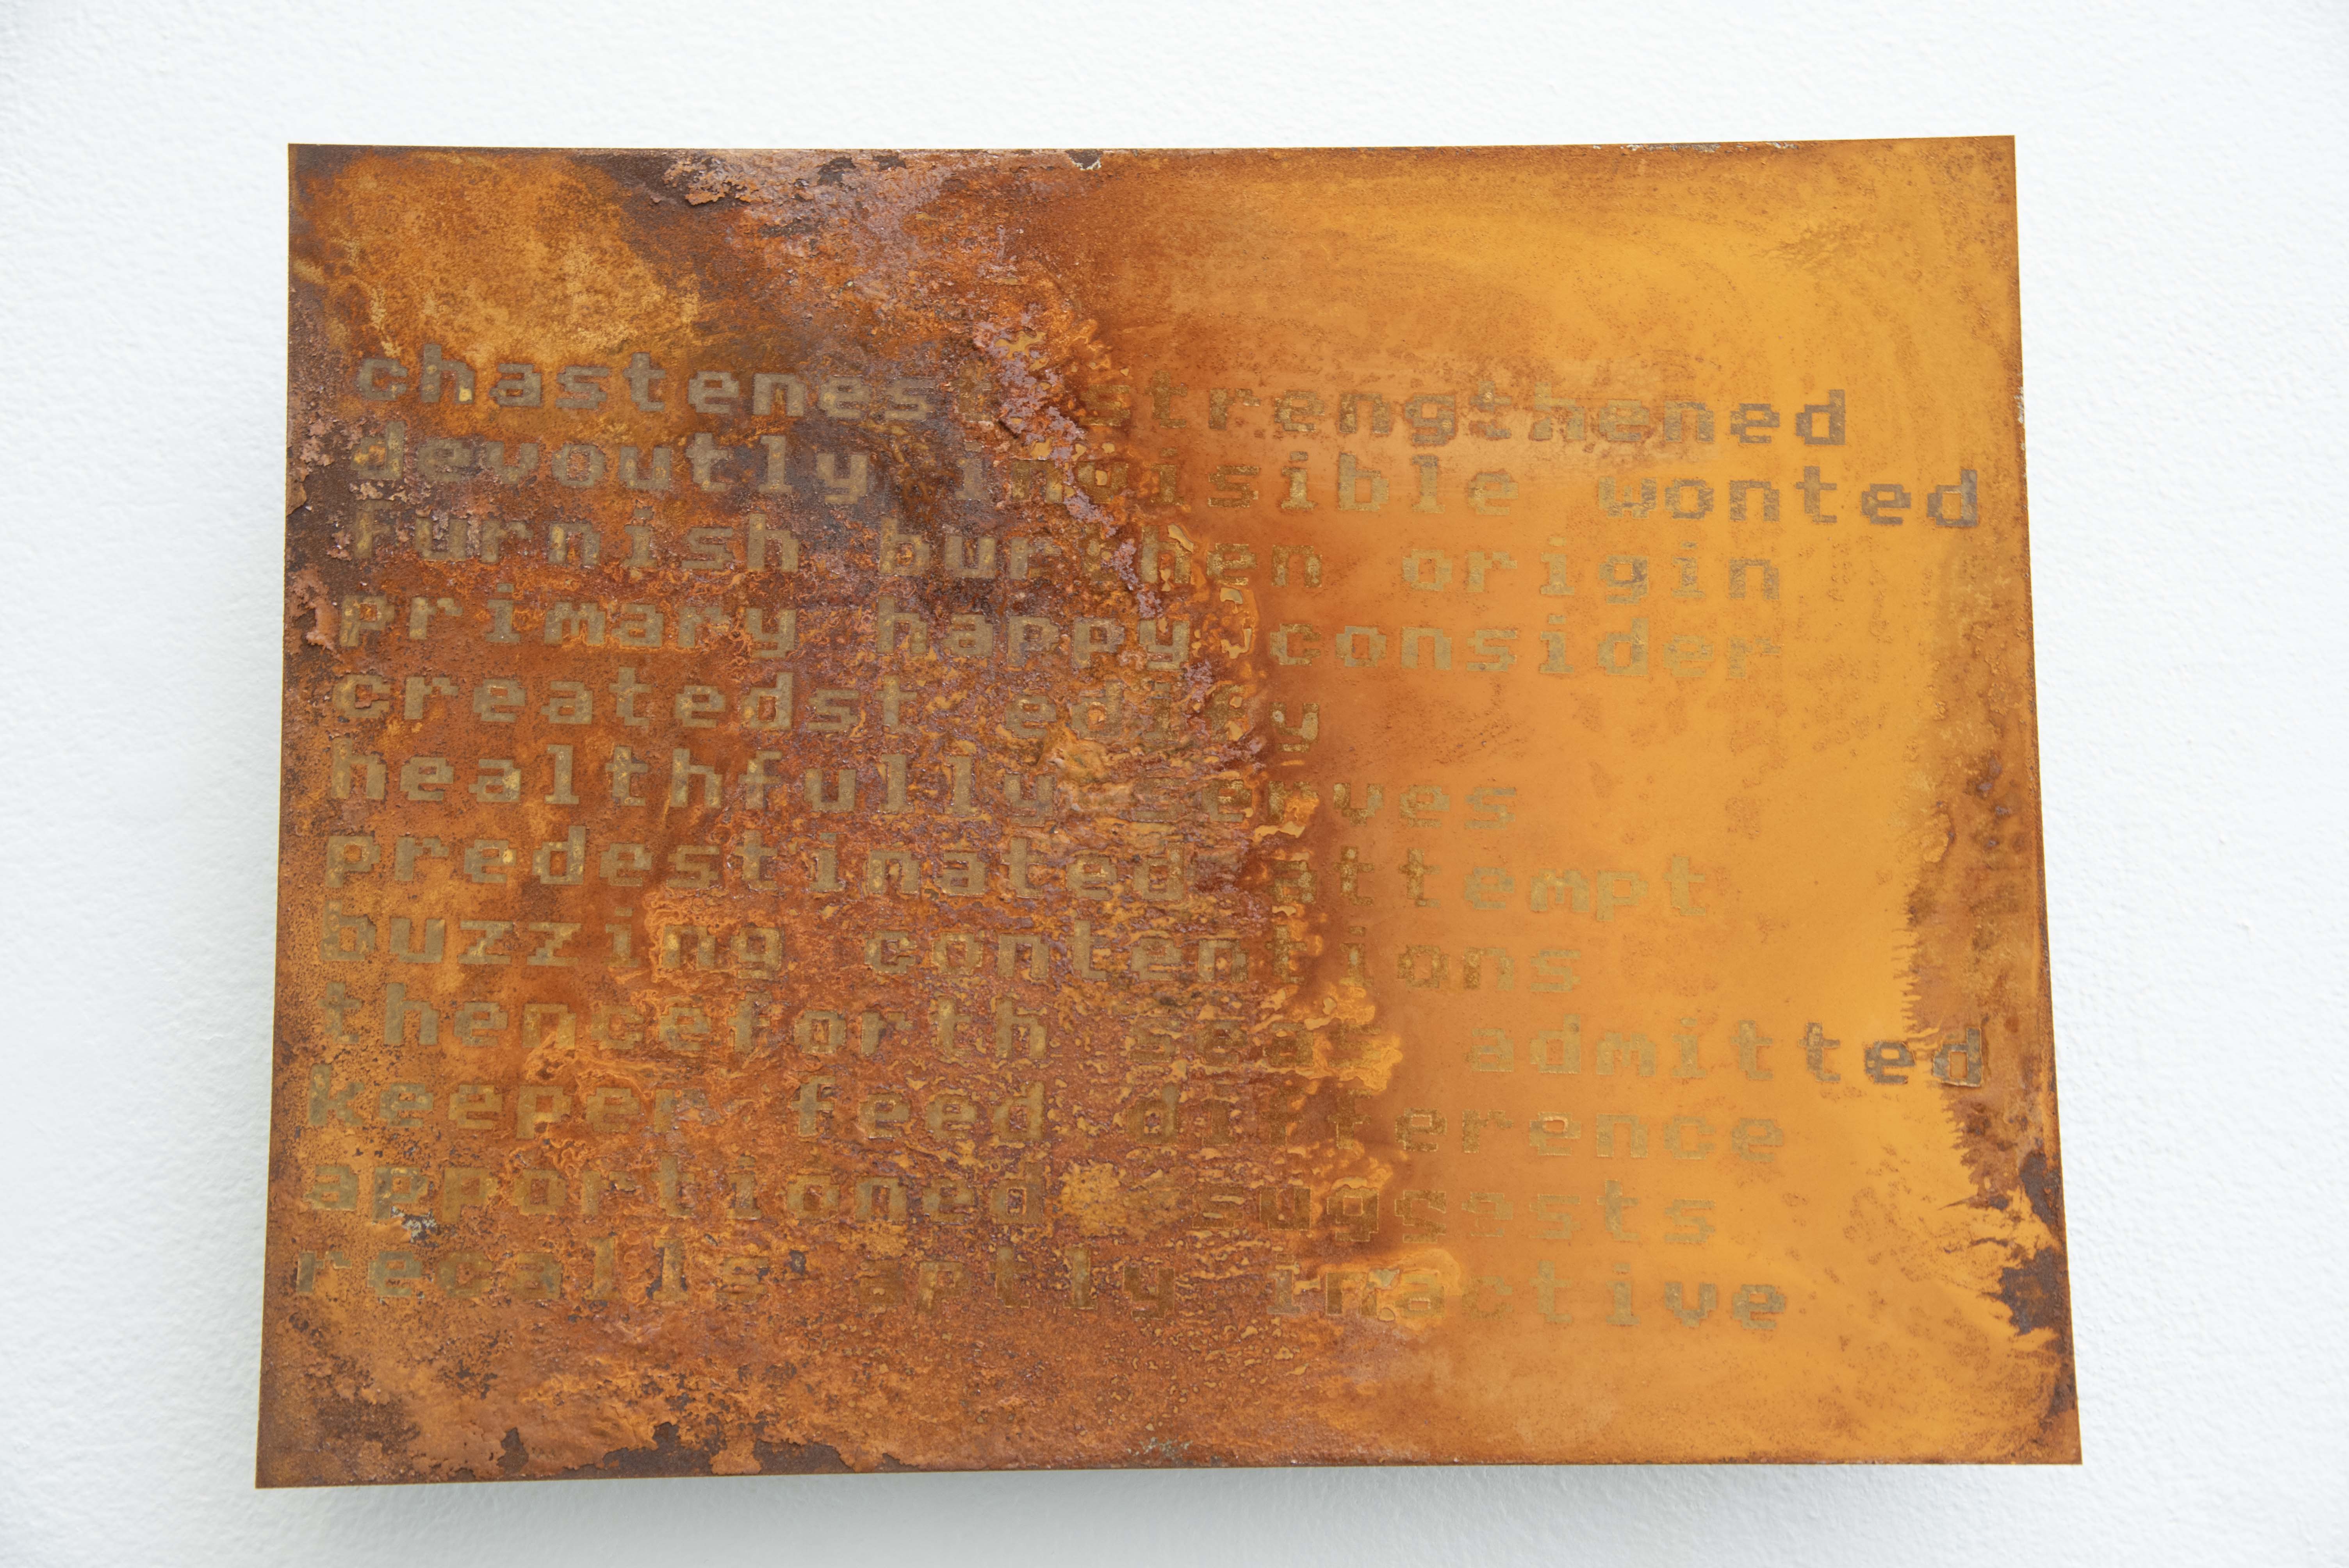 chastenest strengthened
devoutly invisible wonted
furnish burthen origin
primary happy consider
createdst edify
healthfully serves
predestinated attempt
buzzing contentions
thenceforth admitted
keeper feed difference
apportioned suggests
recalls aptly inactive